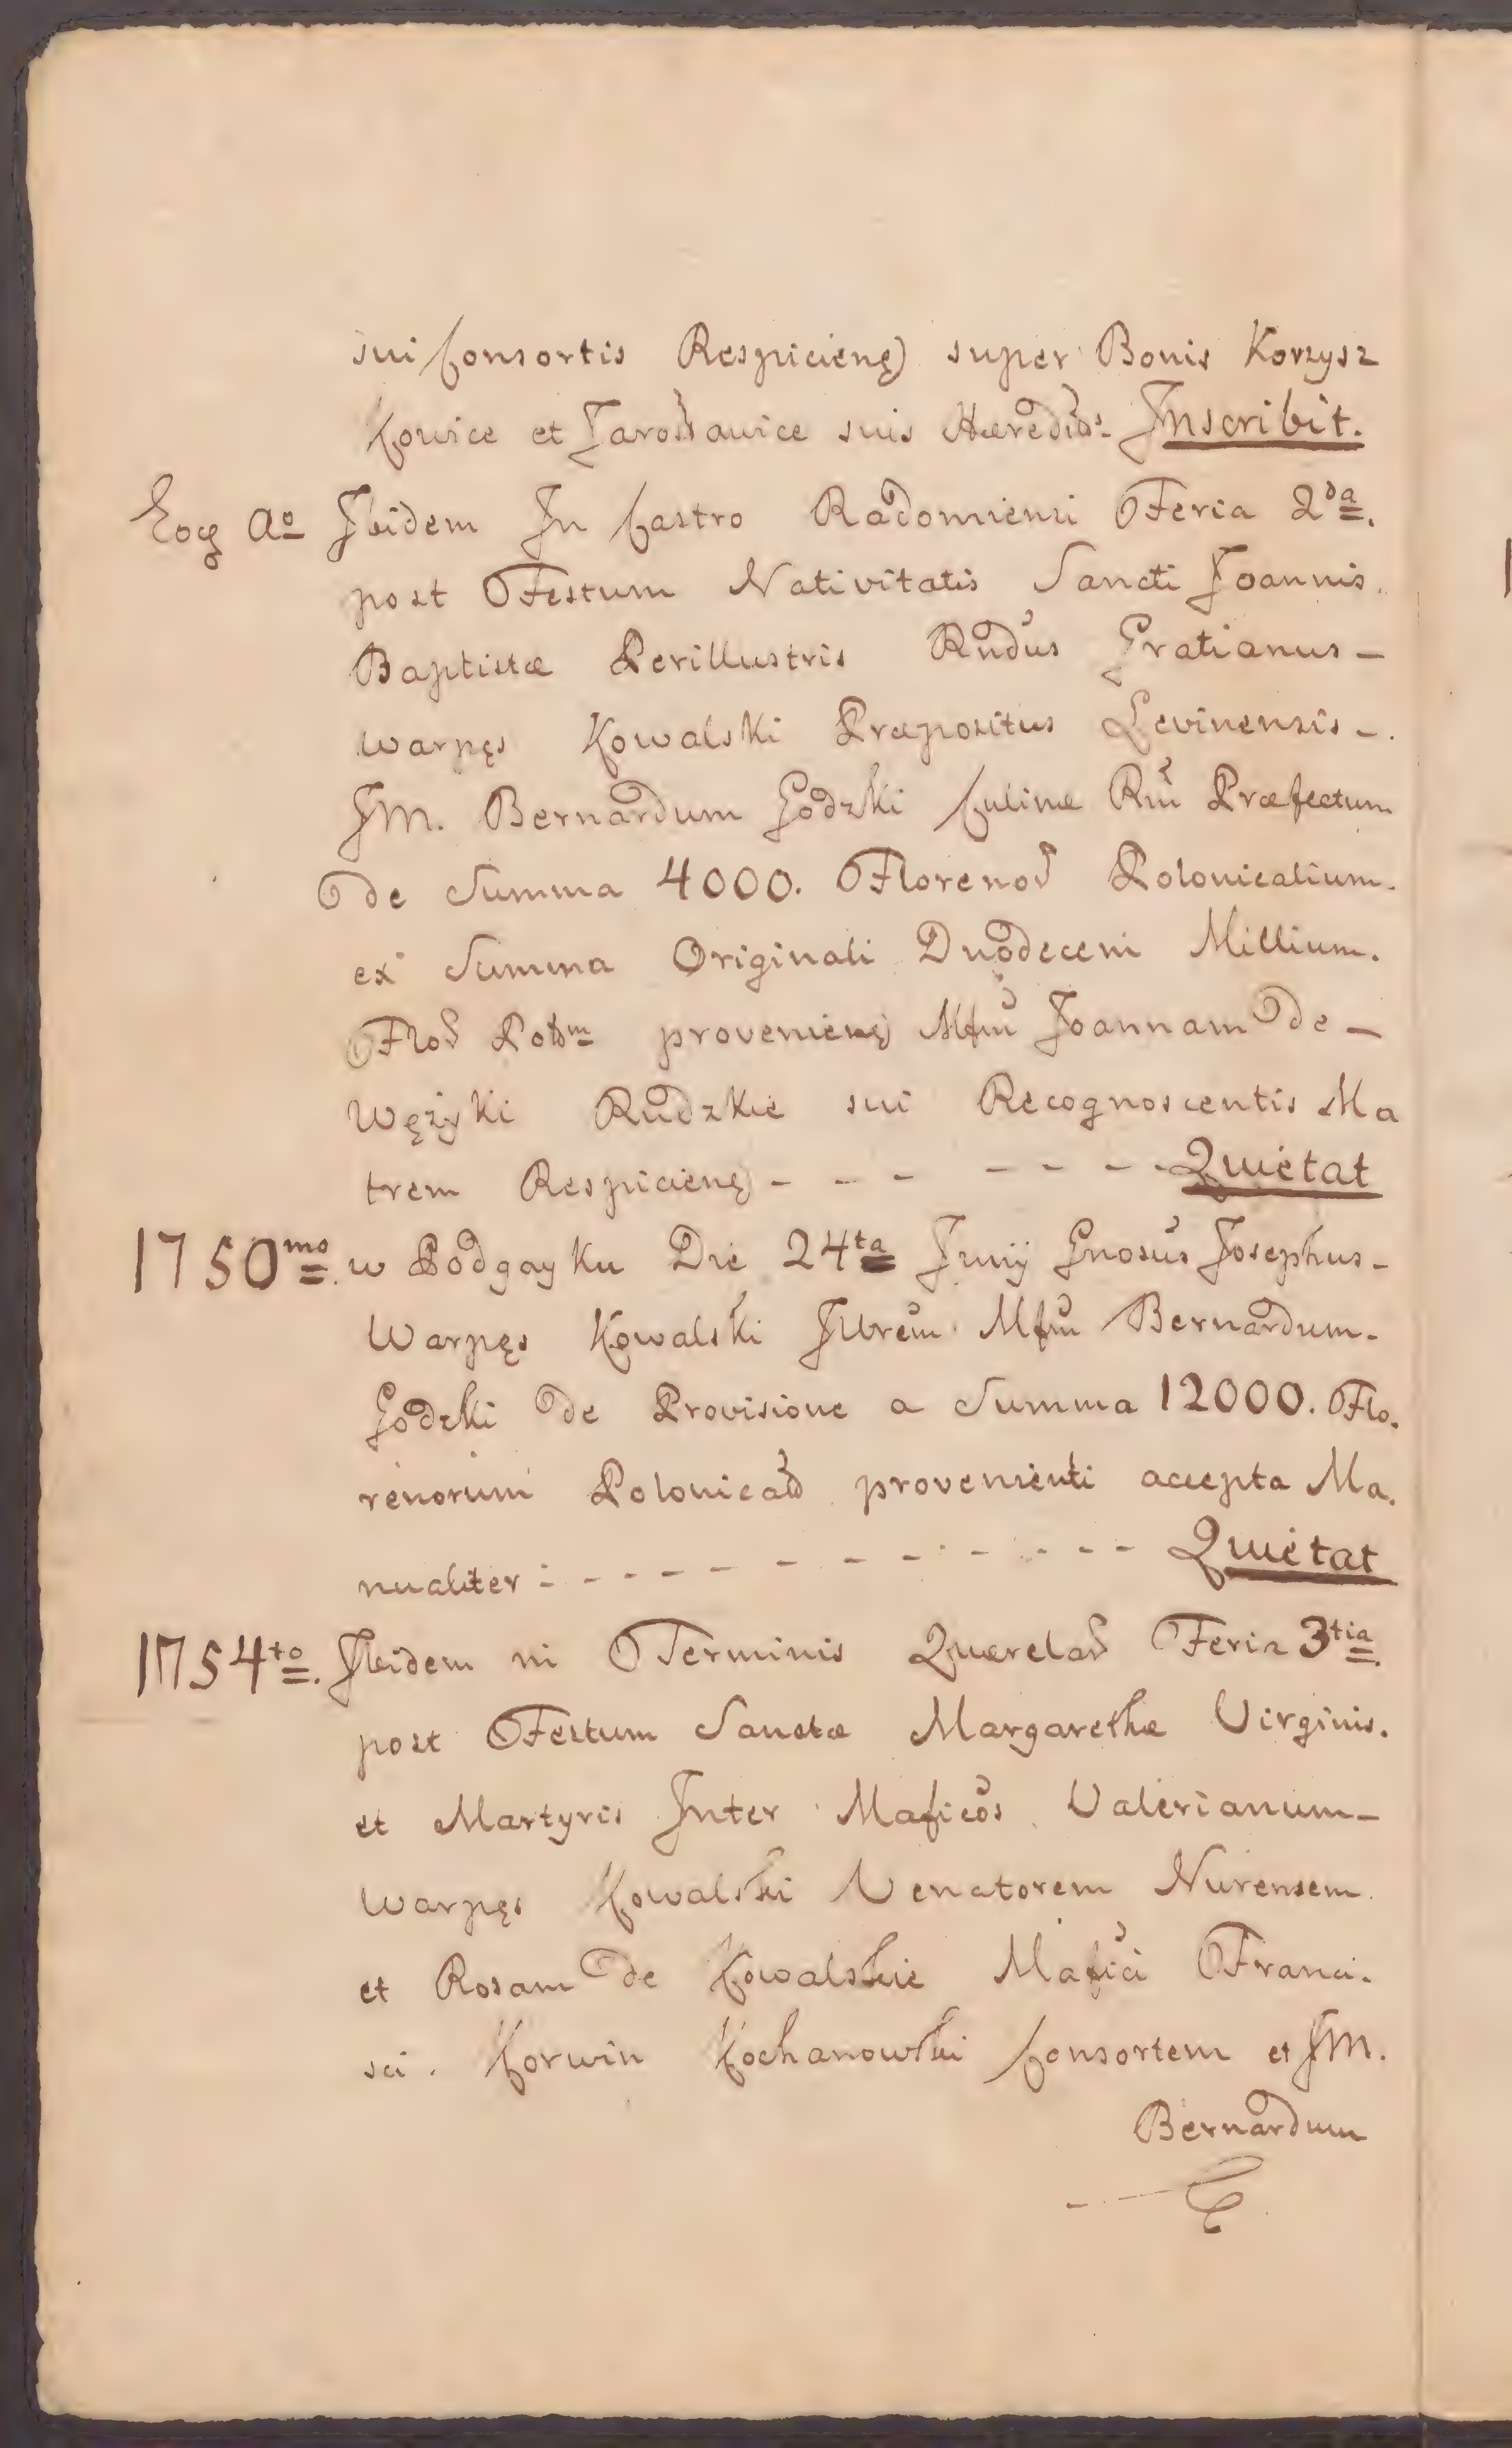 sui Consortis Respicienę) super Bonis Korzysz
kowice et Jarosławice suis Hæredibs. Inscribit.
Eoq Ao Ibidem In Castro Radomiensi Feria 2da.
post Festum Nativitatis Sancti Joannis.
Baptistæ Perillustris Rndus Gratianus –
Warpęs Kowalski Præpositus Levinensis –.
JM. Bernardum Godzki Culinæ Præfectum
de Summa 4000. Florenor Polonicalium.
ex Summa Originali Duodecem Millium.
Flor Polm provenienę) Mfm Joannam de –
Wężyki Rudzkie sui Recognoscentis Ma
trem Respicienę) – – – – – – – Quietat
1750mo. w Podgayku Die 24ta Junij Gnosus Josephus –
Warpęs Kowalski Illrem Mfm Bernardum –
Godzki de Provisione a Summa 12000. Flo.
renorum Polonical provenienti accepta Ma.
nualiter : – – – – – – – – – – – Quietat
1754to. Ibidem in Terminis Querelar Feria 3tia.
post Festum Sanctæ Margarethæ Virginis.
et Martyris Inter Maficos Valerianum –
Warpęs Kowalski Venatorem Nurensem.
et Rosam de Kowalskie Mafici Franci.
sci. Korwin Kochanowski Consortem et JM.
Bernardum